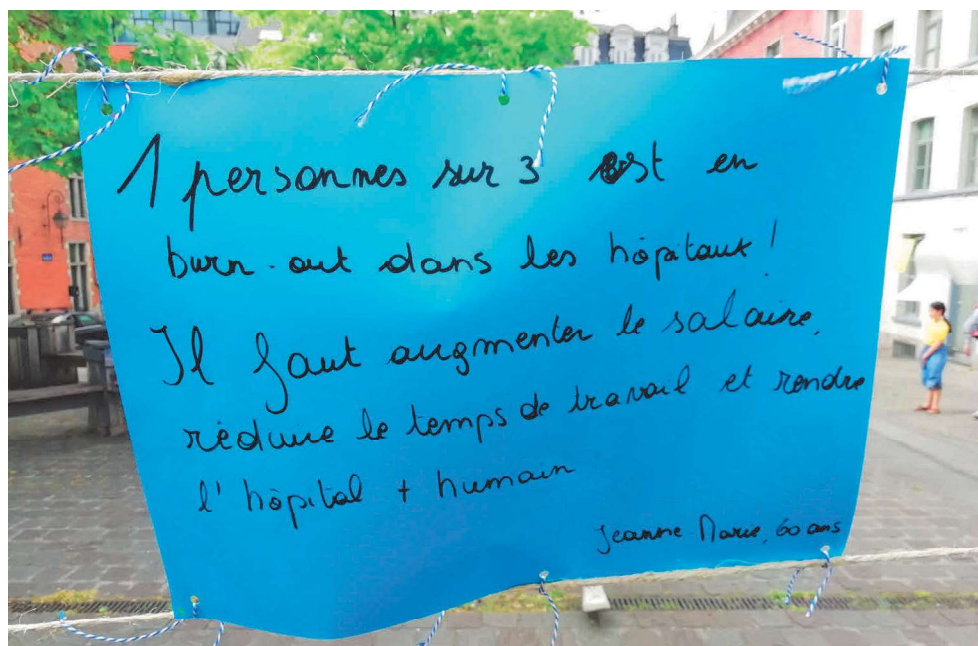 1 personnes sur 3 est en
burn-out dans les hôpitaux !
Il faut augmenter le salaire,
réduire le temps de travail et rendre
l'hôpital + humain
Jeanne-Marie, 60 ans